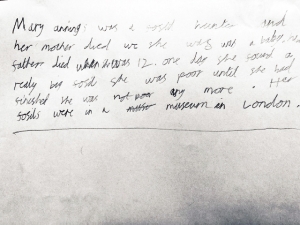 Mary annings was a fosil hunter and
her mother died we she was a baby. Her
father died when she was 12. one day she found a
realy big fosil she was poor until she had
finished she was not poor any more. Her
fosils were in a museum in London.